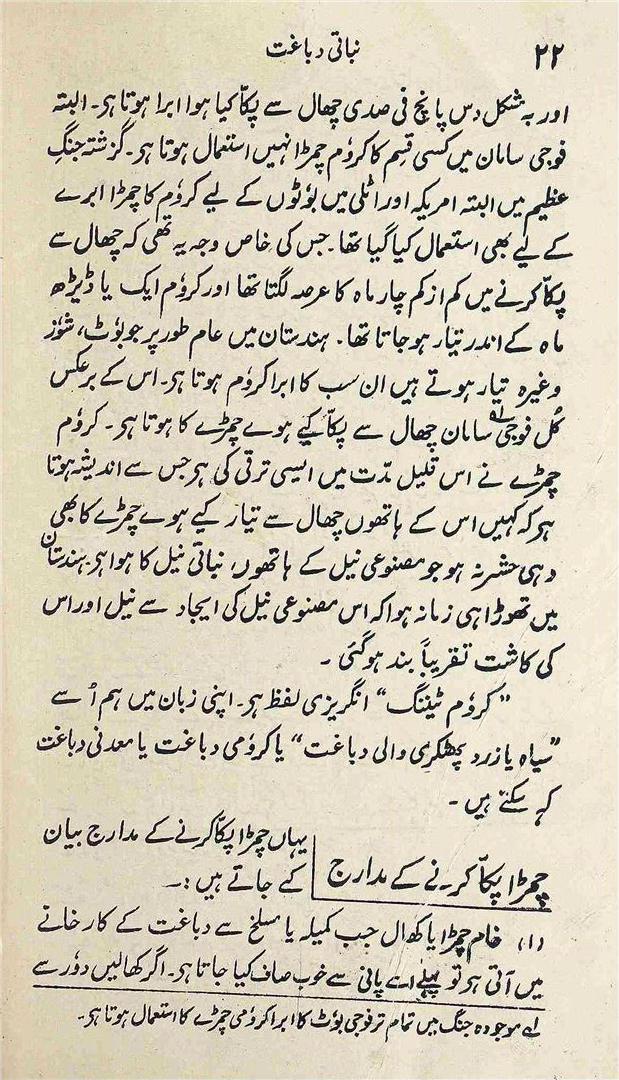 ۲۲ نباتی دباغت
اور بہ شکل دس پانچ فی صدی چھال سے پکّا کیا ہوا ابرا ہوتا ہر۔ البتہ
فوجی سامان میں کسی قسم کا کروم چمڑا نہیں استعمال ہوتا ہر۔ گزشتہ جنگِ
عظیم میں البتہ امریکہ اور اٹلی میں بوٗٹوں کے لیے کروٗم کا چمڑا ابرے
کے لیے بھی استعمال کیا گیا تھا۔ جس کی خاص وجہ یہ تھی کہ چھال سے
پکّا کرنے میں کم از کم چار ماہ کا عرصہ لگتا تھا اور کروٗم ایک یا ڈیڑھ
ماہ کے اندر تیار ہو جاتا تھا۔ ہندستان میں عام طور پر جو بوٗٹ، شوٗز
وغیرہ تیار ہوتے ہیں ان سب کا ابرا کروٗم ہوتا ہر۔ اس کے برعکس
کُل فوجی لہ سامان چھال سے پکّا کیے ہوے چمڑے کا ہوتا ہر۔ کروٗم
چمڑے نے اس قلیل مدّت میں ایسی ترقی کی ہر جس سے اندیشہ ہوتا
ہر کہ کہیں اس کے ہاتھوں چھال سے تیار کیے ہوے چمڑے کا بھی
وہی حشر نہ ہو جو مصنوعی نیل کے ہاتھوں، نباتی نیل کا ہوا ہر۔ ہندستان
میں تھوڑا ہی زمانہ ہوا کہ اس مصنوعی نیل کی ایجاد سے نیل اور اس
کی کاشت تقریباً بند ہو گئی۔
”کروٗم ٹیننگ“ انگریزی لفظ ہر۔ اپنی زبان میں ہم اُسے
”سیاہ یا زرد پھٹکری والی دباغت“ یا کروٗمی دباغت یا معدنی دباغت
کہ سکتے ہیں۔
چمڑا پکّا کرنے کے مدارج یہاں چمڑا پکّا کرنے کے مدارج بیان
کیے جاتے ہیں :۔
(۱) خام چمڑا یا کھال جب کمیلہ یا مسلخ سے دباغت کے کارخانے
میں آتی ہر تو پہلے اسے پانی سے خوب صاف کیا جاتا ہر۔ اگر کھالیں دوٗر سے
لہ موجودہ جنگ میں تمام تر فوجی بوٗٹ کا ابرا کروٗمی چمڑے کا استعمال ہوتا ہر۔